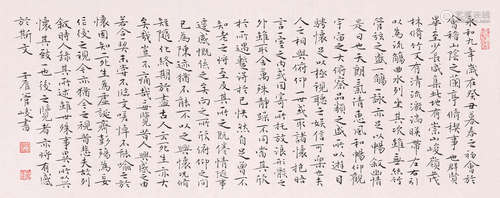 永和九年歲在癸丑暮春之初會於
會稽山陰之蘭亭脩稧事也群賢
畢至少長咸集此地有崇山峻領茂
林脩竹又有清流激湍暎帶左右引
以為流觴曲水列坐其次雖無絲竹
管弦之盛一觴一詠亦足以暢敘幽情
是日也天朗氣清惠風和暢仰觀
宇宙之大俯察品類之盛所以遊目
騁懷足以極視聽之娛信可樂也夫
人之相與俯仰一世或取諸懷抱晤
言一室之內或因寄所託放浪形骸之
外雖取舍萬殊靜躁不同當其欣
於所遇暫得於己快然自足不
知老之將至及其所之既倦情隨事
遷感慨係之矣向之所欣俯仰之間
已為陳跡猶不能不以之興懷況脩
短隨化終期於盡古人云死生亦大
矣豈不痛哉每攬昔人興感之由
若合一契未嘗不臨文嗟悼不能喻之於
懷固知一死生為虛誕齊彭殤為妄
作後之視今亦猶今之視昔悲夫故列
敘時人錄其所述雖世殊事異所以興
懷其致一也後之覽者亦將有感
於斯文 管峻書